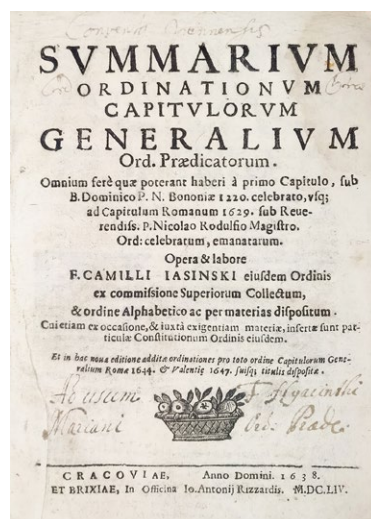 Conventus Viennensis
SVMMARIVM
ORDINATIONVM
CAPITVLORVM
GENERALIVM
Ord. Prædicatorum.
Omnium ferè quæ poterant haberi à primo Capitulo, sub
B. Dominico P. N. Bononiæ 1220. celebrato, vsq;
ad Capitulum Romanum 1629. sub Reue-
rendiss. P. Nicolao Rodulfio Magistro.
Ord: celebratum, emanatarum.
Opera & labore
F. CAMILLI IASINSKI eiusdem Ordinis
ex commissione Superiorum Collectum,
& ordine Alphabetico ac per materias dispositum.
Cui etiam ex occasione, & iuxtà exigentiam materiæ, insertæ sunt par-
ticulæ Constitutionum Ordinis eiusdem.
Et in hac noua editione additæ ordinationes pro toto ordine Capitulorum Gene-
ralium Romæ 1644. & Valentiæ 1647. suisq; titulis dispositæ.
Ad usum F. Hyacinthi
Mariani Ord: Præd:
CRACOVIAE, Anno Domini. 1638.
ET BRIXIAE, In Officina Io. Antonij Rizzardis. M.DC.LIV.